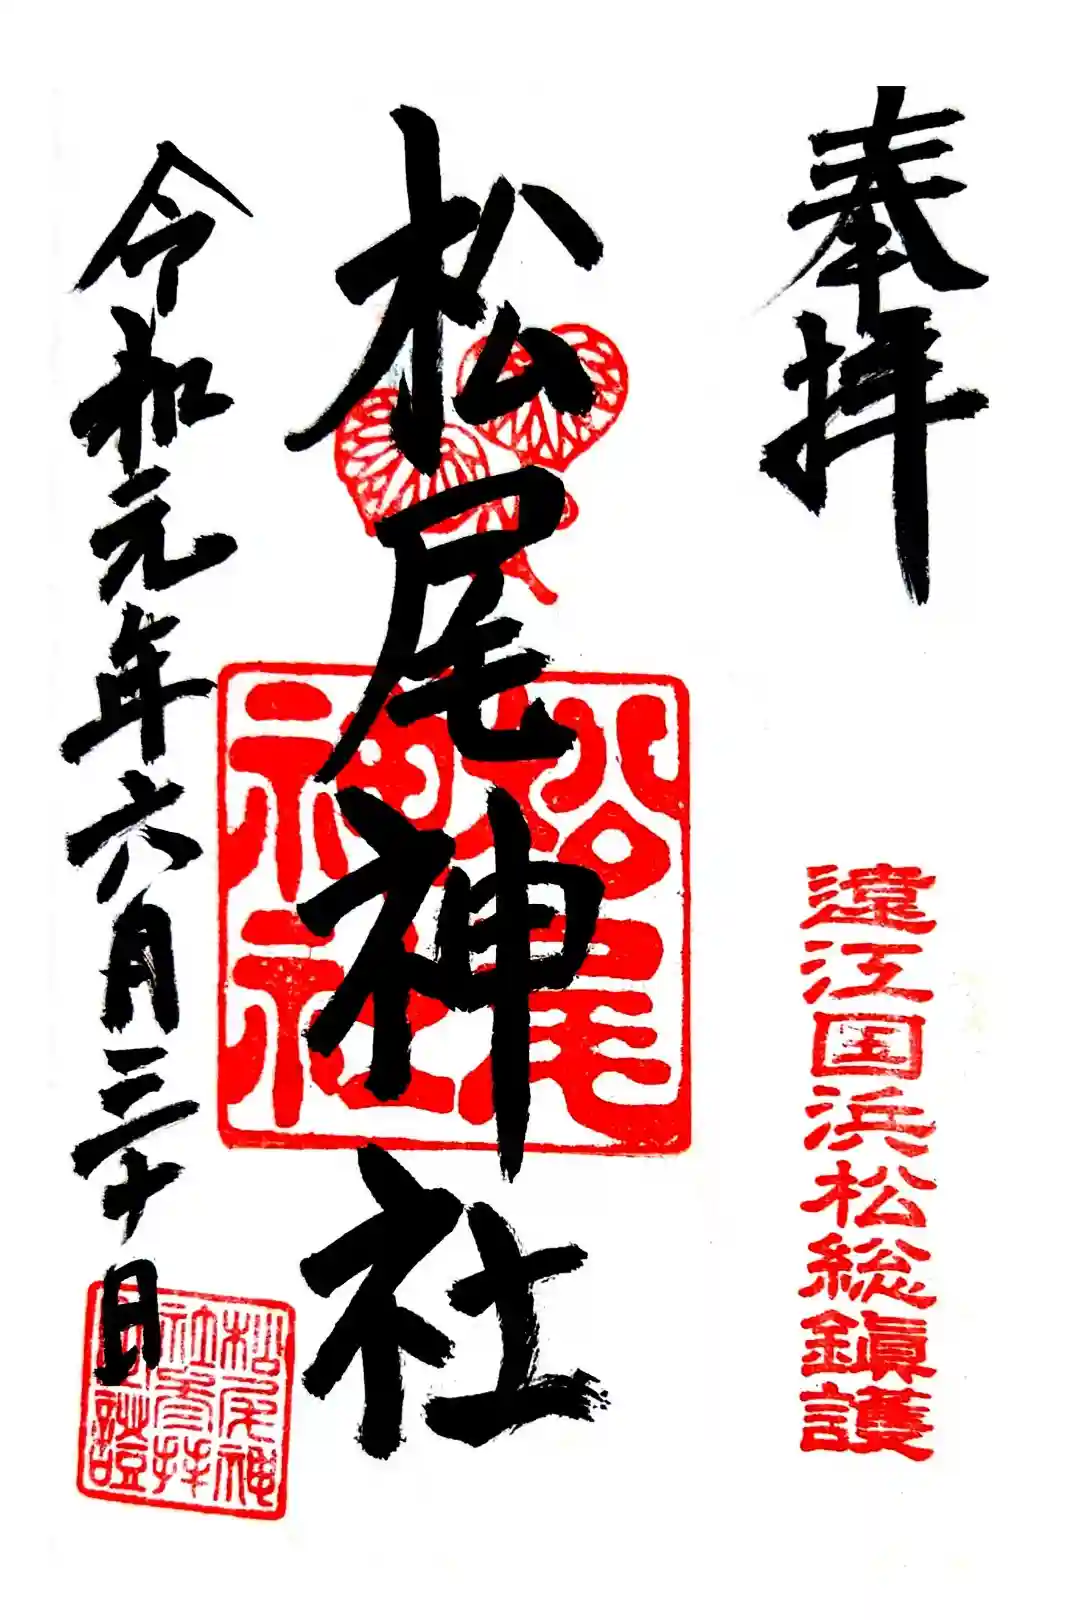 奉拝
遠江国浜松総鎮護
松尾神社
松尾
神社
令和元年六月三十日
松尾神
社参拝
證